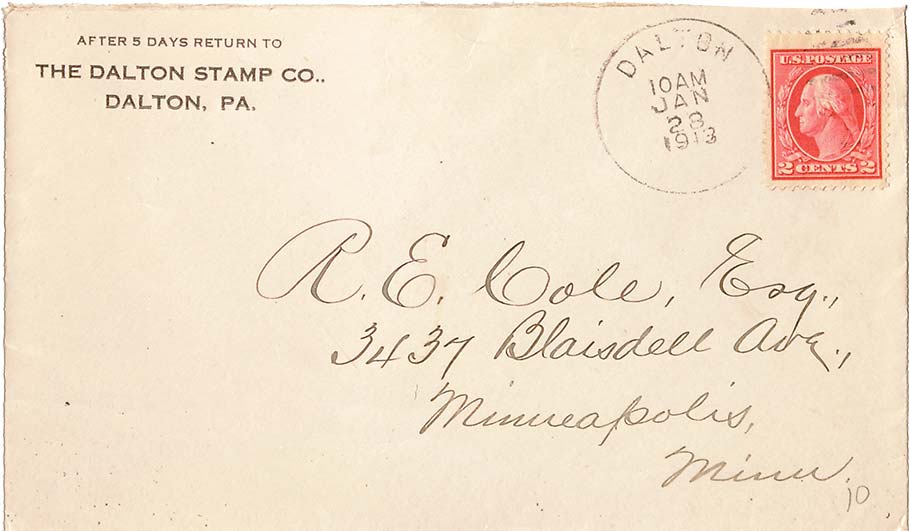 AFTER 5 DAYS RETURN TO
THE DALTON STAMP CO..
DALTON, PA.
DALTON
10AM
JAN
28
1913
U.S. POSTAGE
2 CENTS 2
R. E. Cole, Esq.,
3437 Blaisdell Ave.,
Minneapolis,
Minn.
10